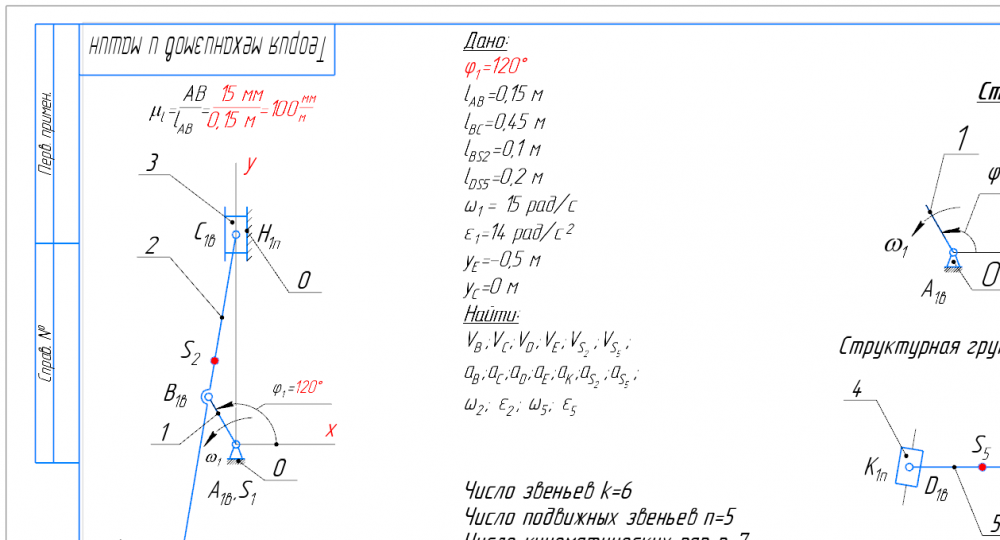 Теория механизмов и машин
Перв. примен.
Справ. №
μ_l = AB/l_AB = 15 мм/0,15 м = 100 мм/м
y
3
C₁в
H₁п
2
0
S₂
B₁в
φ₁=120°
1
x
ω₁
0
A₁в, S₁
Дано:
φ₁=120°
l_AB=0,15 м
l_BC=0,45 м
l_BS2=0,1 м
l_DS5=0,2 м
ω₁ = 15 рад/с
ε₁=14 рад/с²
y_E=-0,5 м
y_C=0 м
Найти:
V_B; V_C; V_D; V_E; V_S₂; V_S₅;
a_B; a_C; a_D; a_E; a_K; a_S₂; a_S₅;
ω₂; ε₂; ω₅; ε₅
Число звеньев k=6
Число подвижных звеньев n=5
1
φ
ω₁
A₁в
0
4
K₁п
D₁в
S₅
5